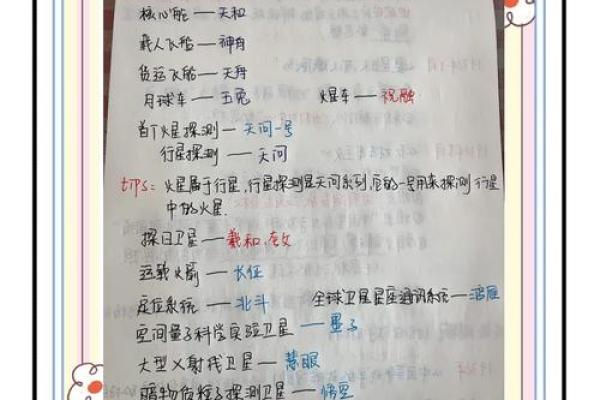 核心舱——天和
载人飞船——神舟
货运飞船——天舟
月球车——玉兔 火星车——祝融
首个火星探测——天问一号
行星探测——天问
tips: 火星属于行星,行星探测是天问系列,后的一号用来探测行星
中的火星.
探日卫星——羲和
运载火箭——长征
定位系统——北斗 全球卫星星座通讯系统——鸿雁
空间量子科学实验卫星——墨子
大型X射线卫星——慧眼
暗物质粒子探测卫星——悟空